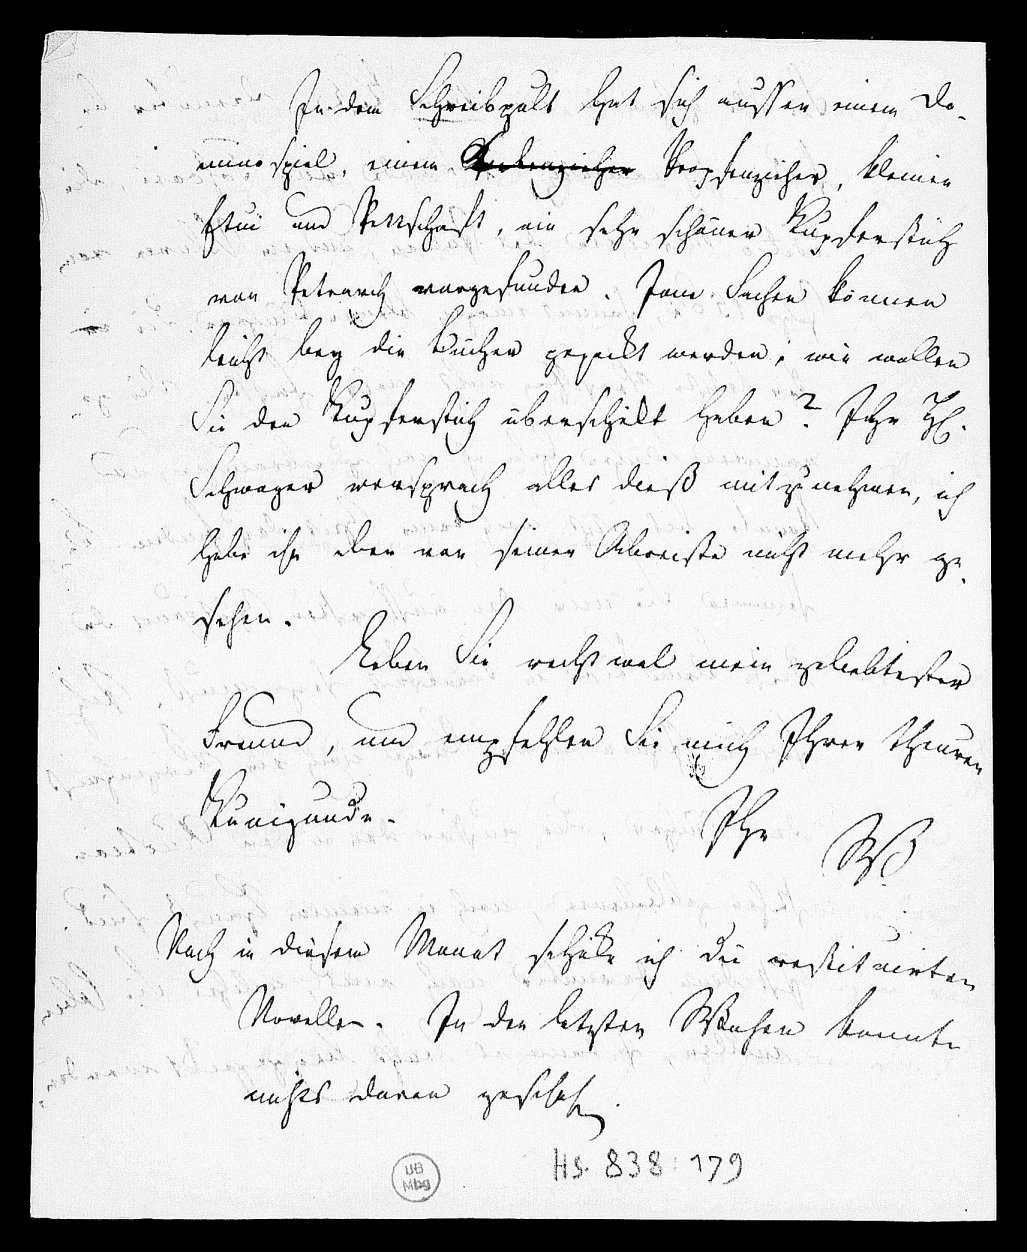 In dem Schreibpult hat sich ausser einem Do-
minospiel, einem Propfenzieher, kleinen
Etui und Pettschaft, ein sehr schöner Kupferstich
von Petrarch vorgefunden. Jene Sachen können
leicht bey die Bücher gepackt werden; wie wollen
Sie den Kupferstich überschickt haben? Ihr H.
Schwager versprach alles dieß mitzunehmen, ich
habe ihn aber vor seiner Abreise nicht mehr ge-
sehen.
Leben Sie recht wol mein geliebtester
Freund, und empfehlen Sie mich Ihrer theuren
Kunigunde.
Ihr
Noch in diesem Monat schicke ich die restituirten
Novellen. In den letzten Wochen konnte
nichts daran geschehen.
UB
Mbg
Hs. 838:179